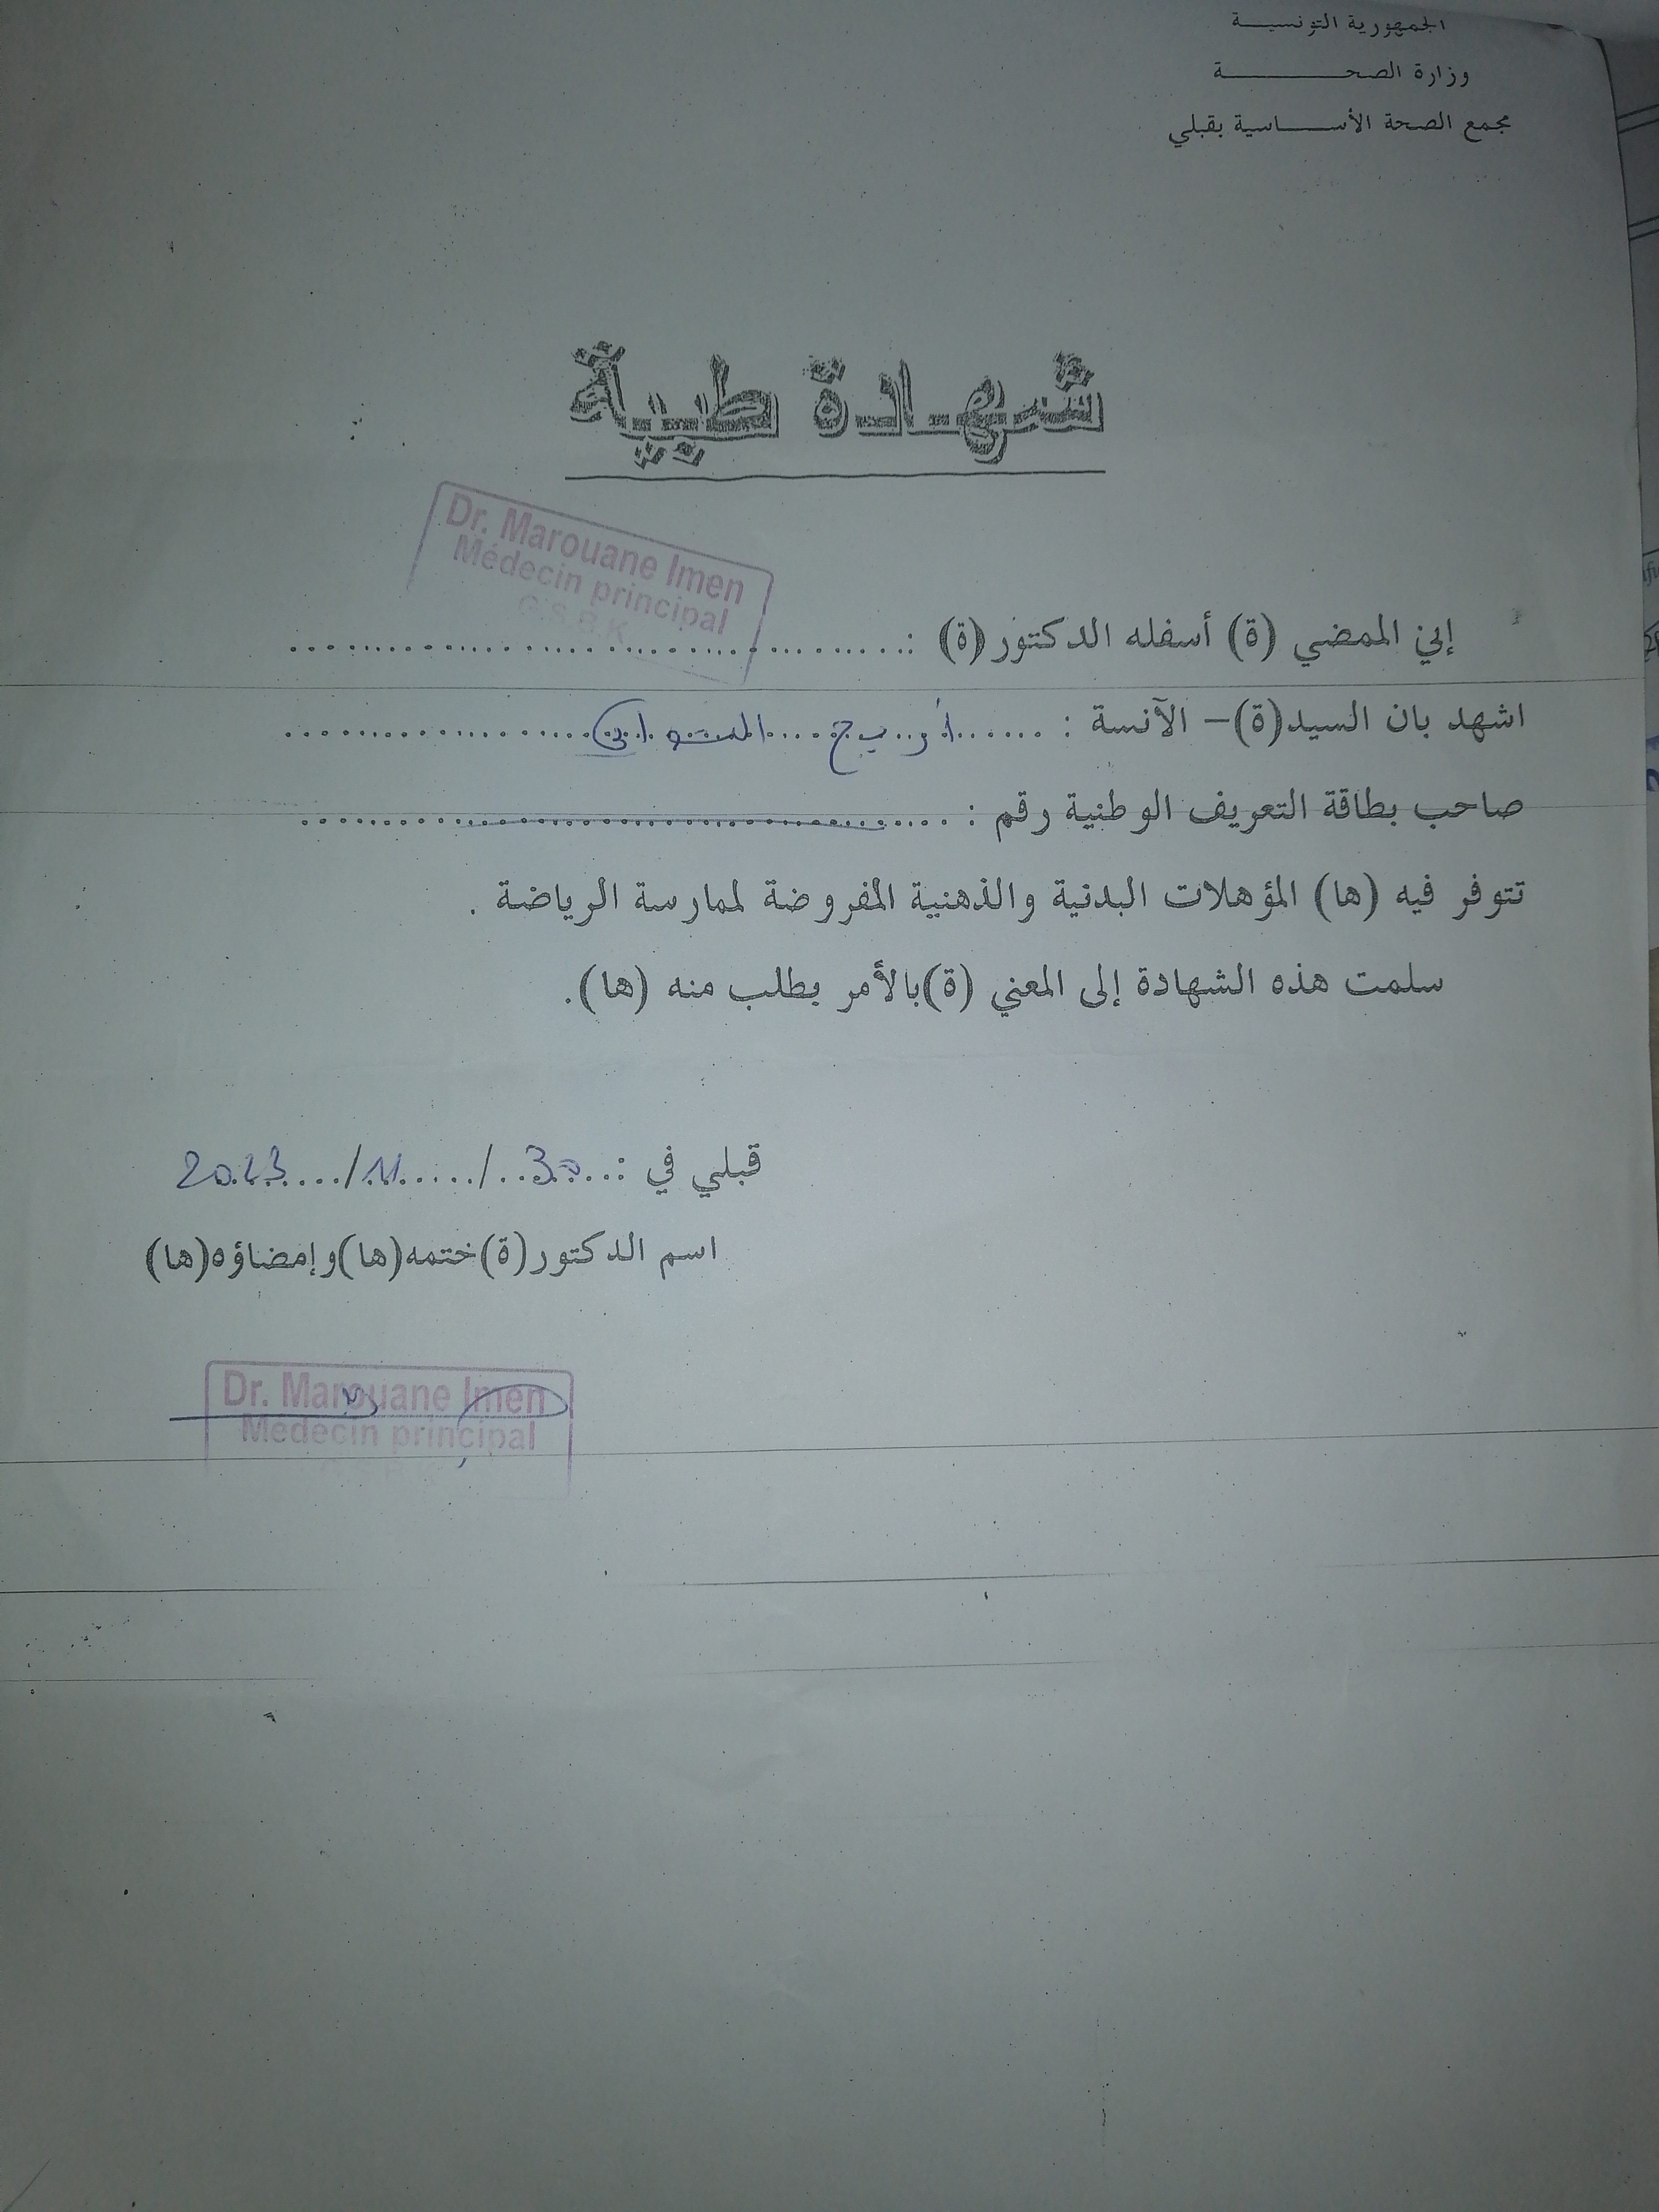 الجمهورية التونسية
وزارة الصحة
مجمع الصحة الأساسية بقبلي
شهادة طبية
Dr. Marouane Imen
Médecin principal
G.S.B.K
إني الممضي (ة) أسفله الدكتور(ة) :
اشهد بان السيد(ة)– الآنسة : أريج
صاحب بطاقة التعريف الوطنية رقم :
تتوفر فيه (ها) المؤهلات البدنية والذهنية المفروضة لممارسة الرياضة .
سلمت هذه الشهادة إلى المعني (ة)بالأمر بطلب منه (ها).
قبلي في : 30 / 11 / 2023
اسم الدكتور(ة)ختمه(ها)وإمضاؤه(ها)
Dr. Marouane Imen
Médecin principal